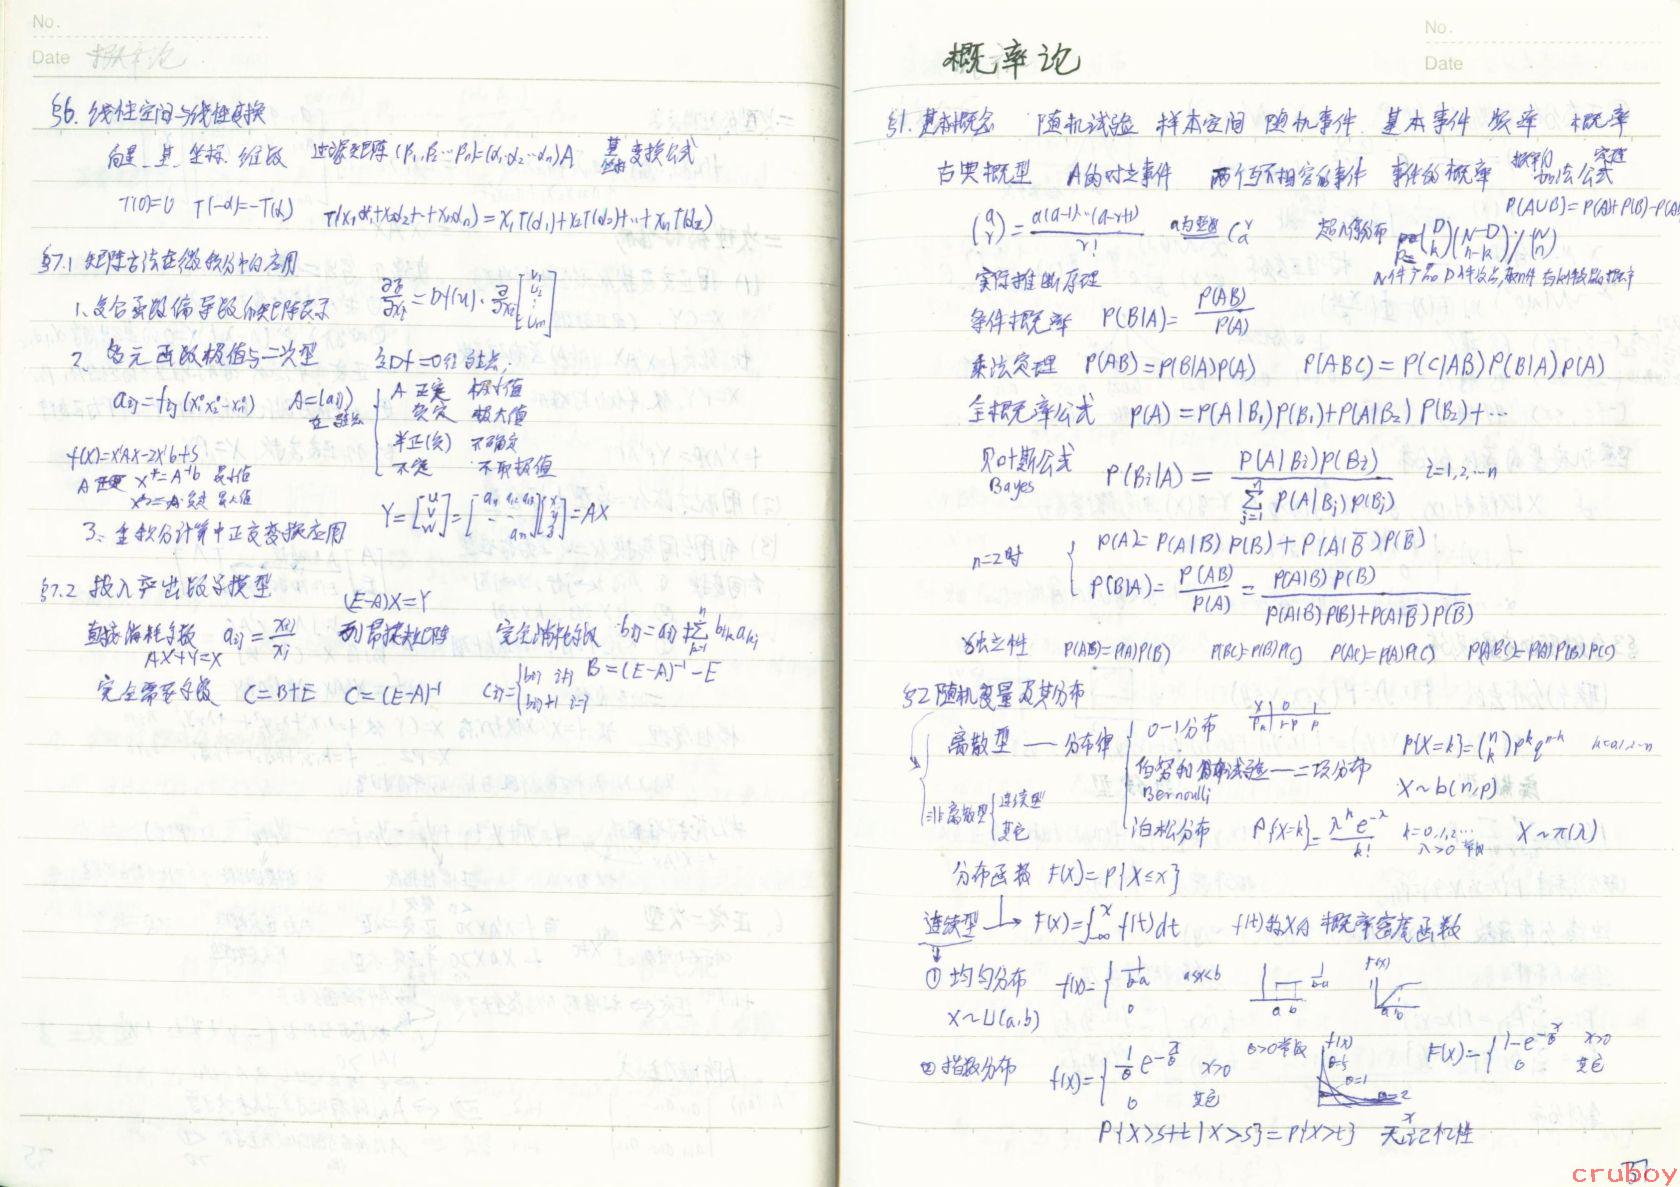 No.
Date 概率论
§6. 线性空间与线性变换
向量、基、坐标、维数 过渡矩阵 (β₁,β₂…βn)=(α₁,α₂…αn)A 基 坐标 变换公式
T(0)=0 T(-α)=-T(α) T(x₁α₁+x₂α₂+…+xnαn)=x₁T(α₁)+x₂T(α₂)+…+xnT(αn)
§7.1 矩阵方法在微积分中的应用
1、复合函数偏导数的矩阵表示
2、多元函数极值与二次型 令Df=0得驻点:
A 正定 极小值
负定 极大值
半正(负) 不确定
不定 不取极值
f(x)=x'Ax-2x'b+s
A正定 x*=A⁻¹b 最小值
3、重积分计算中正交变换应用
Y=[u v w]=AX
§7.2 投入产出数学模型
(E-A)X=Y
直接消耗系数 aij=xij/xj 列昂惕夫矩阵 完全消耗系数 bij=aij+Σbikakj
AX+Y=X B=(E-A)⁻¹-E
完全需要系数 C=B+E C=(E-A)⁻¹ cij={bij i≠j bij+1 i=j
No.
Date
概率论
§1. 基本概念 随机试验 样本空间 随机事件 基本事件 频率 概率
古典概型 A的对立事件 两个互不相容的事件 事件的概率 概率的加法公式 定理
P(A∪B)=P(A)+P(B)-P(A
(a r)=a(a-1)…(a-r+1)/r! a为整数 Cₐʳ 超几何分布 P=(D k)(N-D n-k)/(N n)
N件产品D件次品,取n件 有k件次品的概率
实际推断原理
条件概率 P(B|A)=P(AB)/P(A)
乘法定理 P(AB)=P(B|A)P(A) P(ABC)=P(C|AB)P(B|A)P(A)
全概率公式 P(A)=P(A|B₁)P(B₁)+P(A|B₂)P(B₂)+…
贝叶斯公式 P(Bi|A)=P(A|Bi)P(Bi)/Σⁿⱼ₌₁P(A|Bj)P(Bj) i=1,2,…n
Bayes
n=2时 P(A)=P(A|B)P(B)+P(A|B̅)P(B̅)
P(B|A)=P(AB)/P(A)=P(A|B)P(B)/P(A|B)P(B)+P(A|B̅)P(B̅)
独立性 P(AB)=P(A)P(B) P(BC)=P(B)P(C) P(AC)=P(A)P(C) P(ABC)=P(A)P(B)P(C)
§2 随机变量及其分布
离散型 — 分布律 0-1分布 X 0 1 Pk 1-p p
P{X=k}=(n k)pᵏqⁿ⁻ᵏ k=0,1,2…n
伯努利 试验—二项分布 X~b(n,p)
Bernoulli
非离散型 连续型 其它
泊松分布 P{X=k}=λᵏe⁻λ/k! k=0,1,2… λ>0 常数 X~π(λ)
分布函数 F(x)=P{X≤x}
连续型 → F(x)=∫ˣ₋∞ f(t)dt f(t)为X的概率密度函数
① 均匀分布 f(x)={1/(b-a) a<x<b 0 1/(b-a) a b F(x) 1 a b
X~U(a,b)
② 指数分布 f(x)={1/θ e^(-x/θ) x>0 0 其它 θ>0常数 f(x) θ=1 θ=2 x F(x)={1-e^(-x/θ) x>0 0 其它
P{X>s+t|X>s}=P{X>t} 无记忆性
cruboy